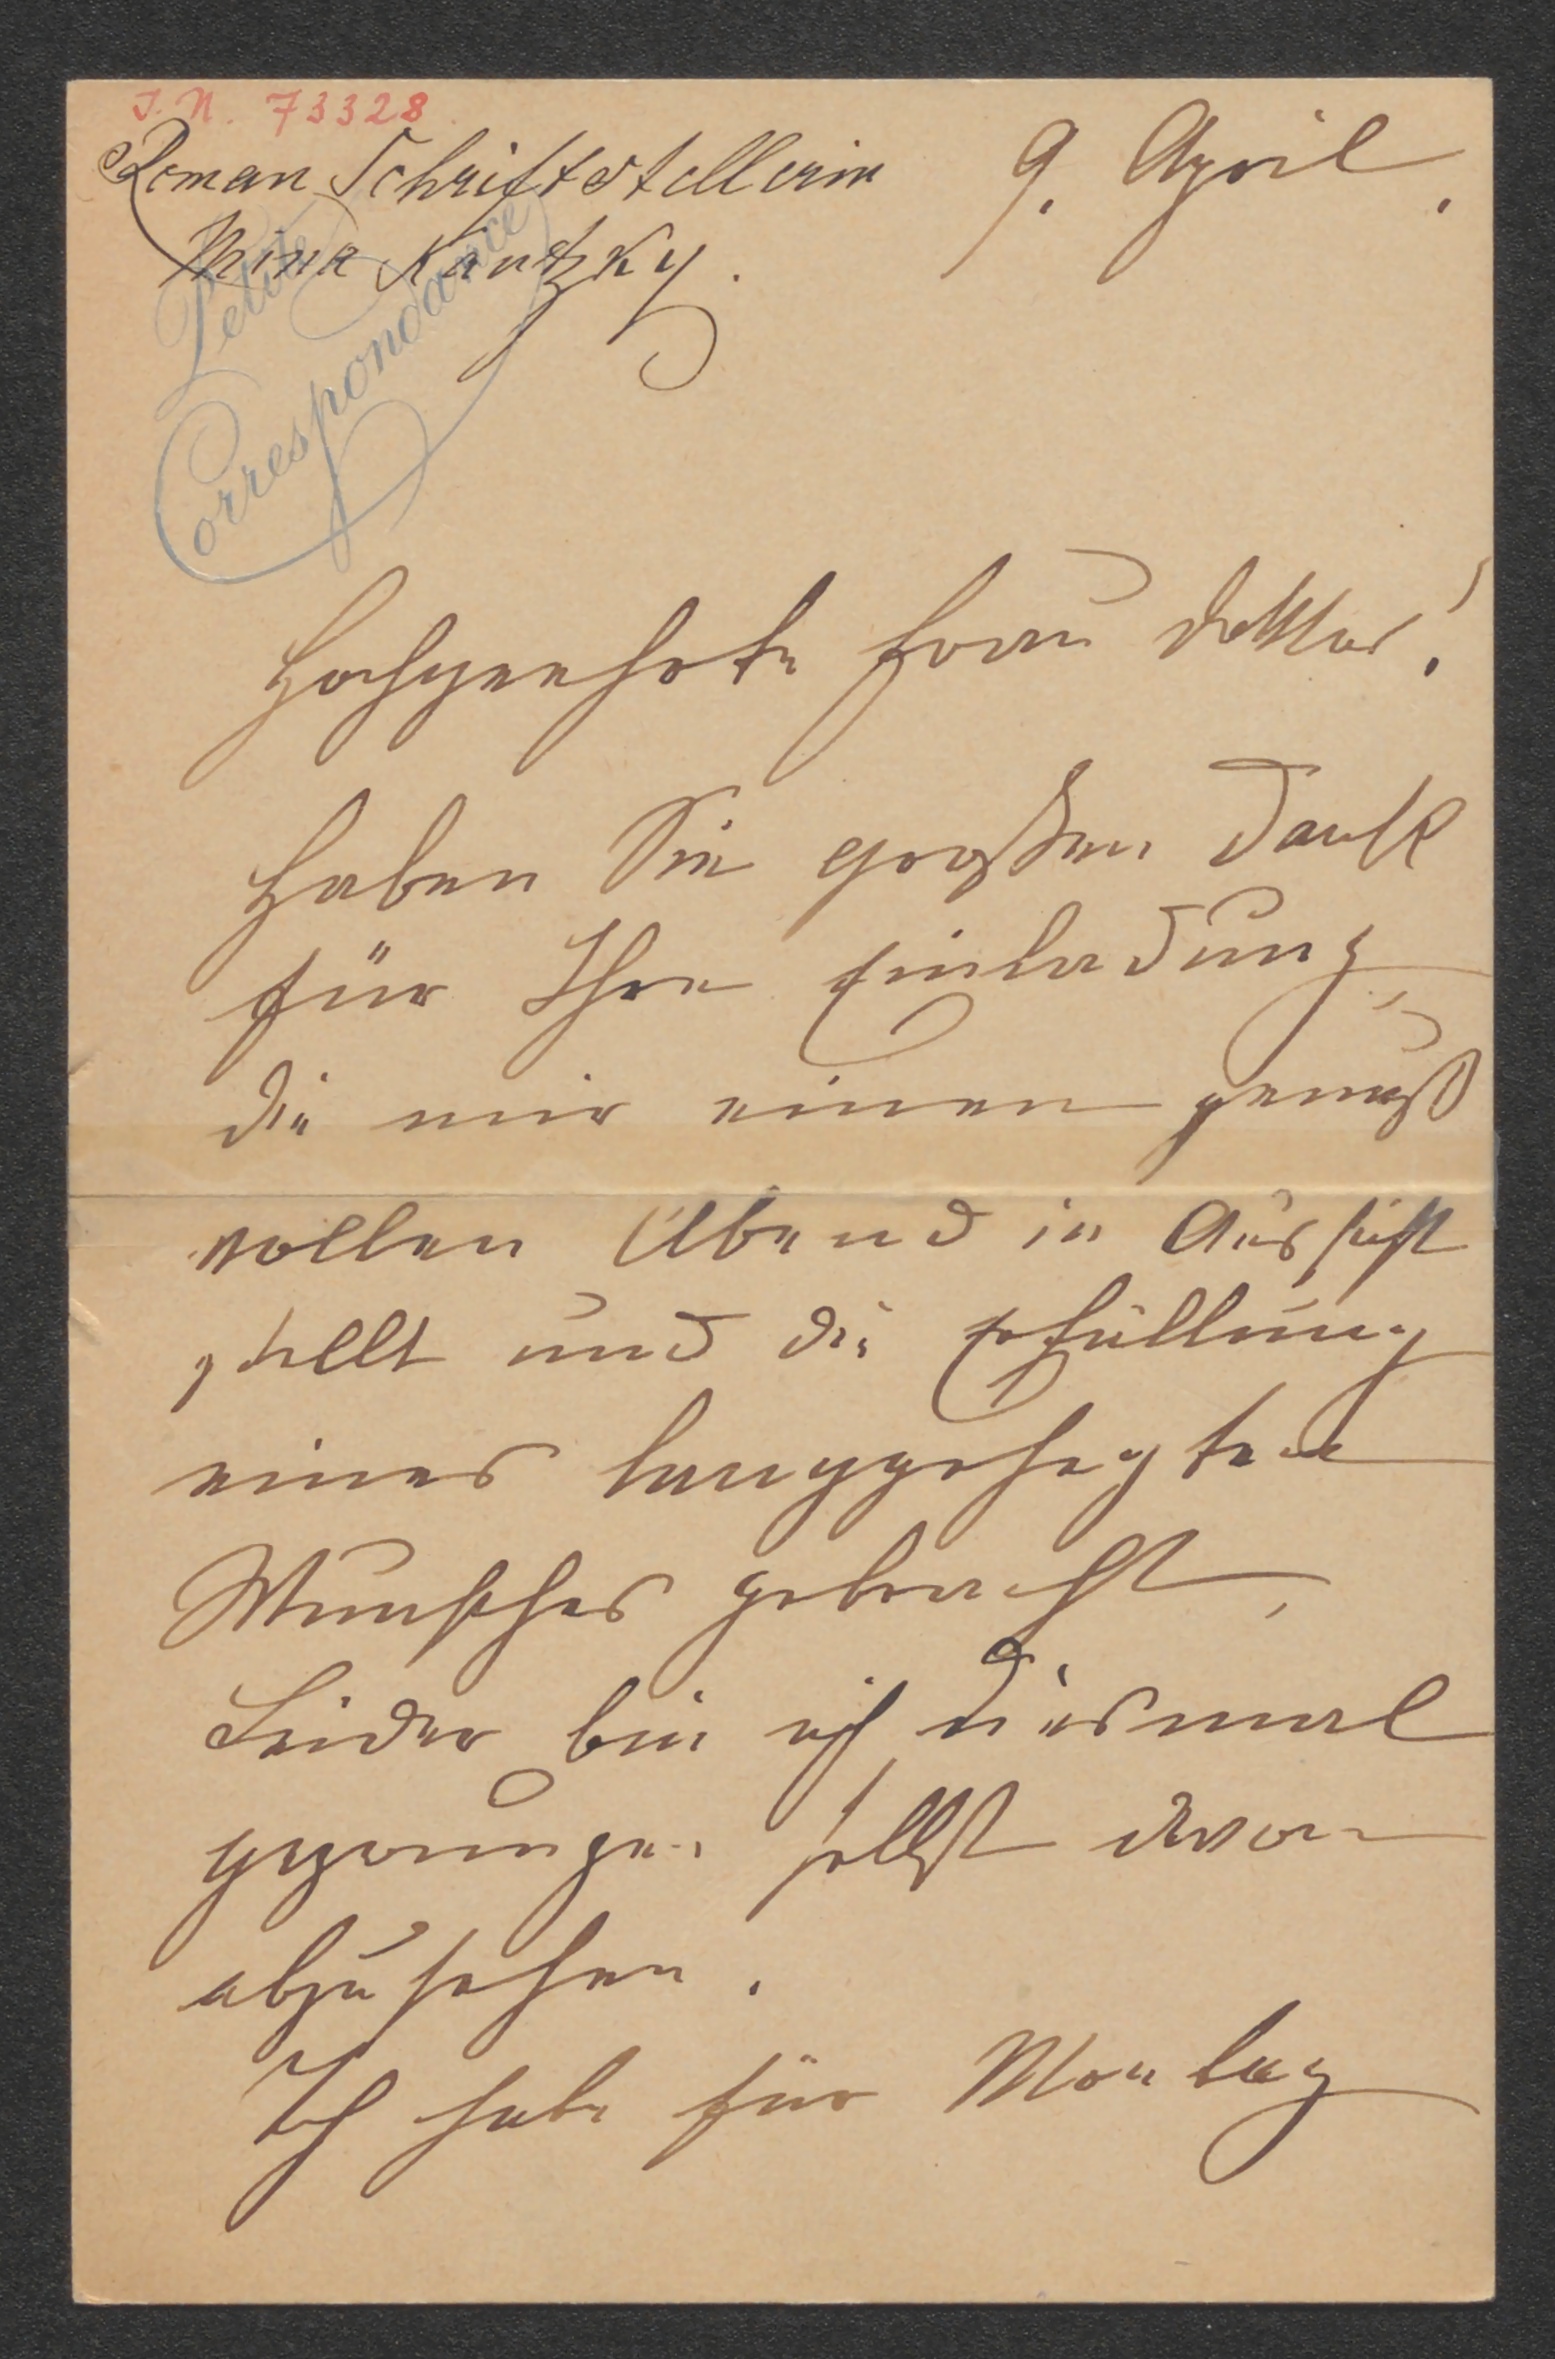 J. N. 73328
Roman Schriftstellerin
Mina Kautzky.
9. April.
Petite
Correspondance
Hochgeehrte Frau Doktor!
Haben Sie großen Dank
für Ihre Einladung,
die mir einen genuß
vollen Abend in Aussicht
stellt und die Erfüllung
eines langgehegten
Wunsches gebracht,
Leider bin ich diesmal
gezwungen selbst davon
abzusehen.
Ich habe für Montag